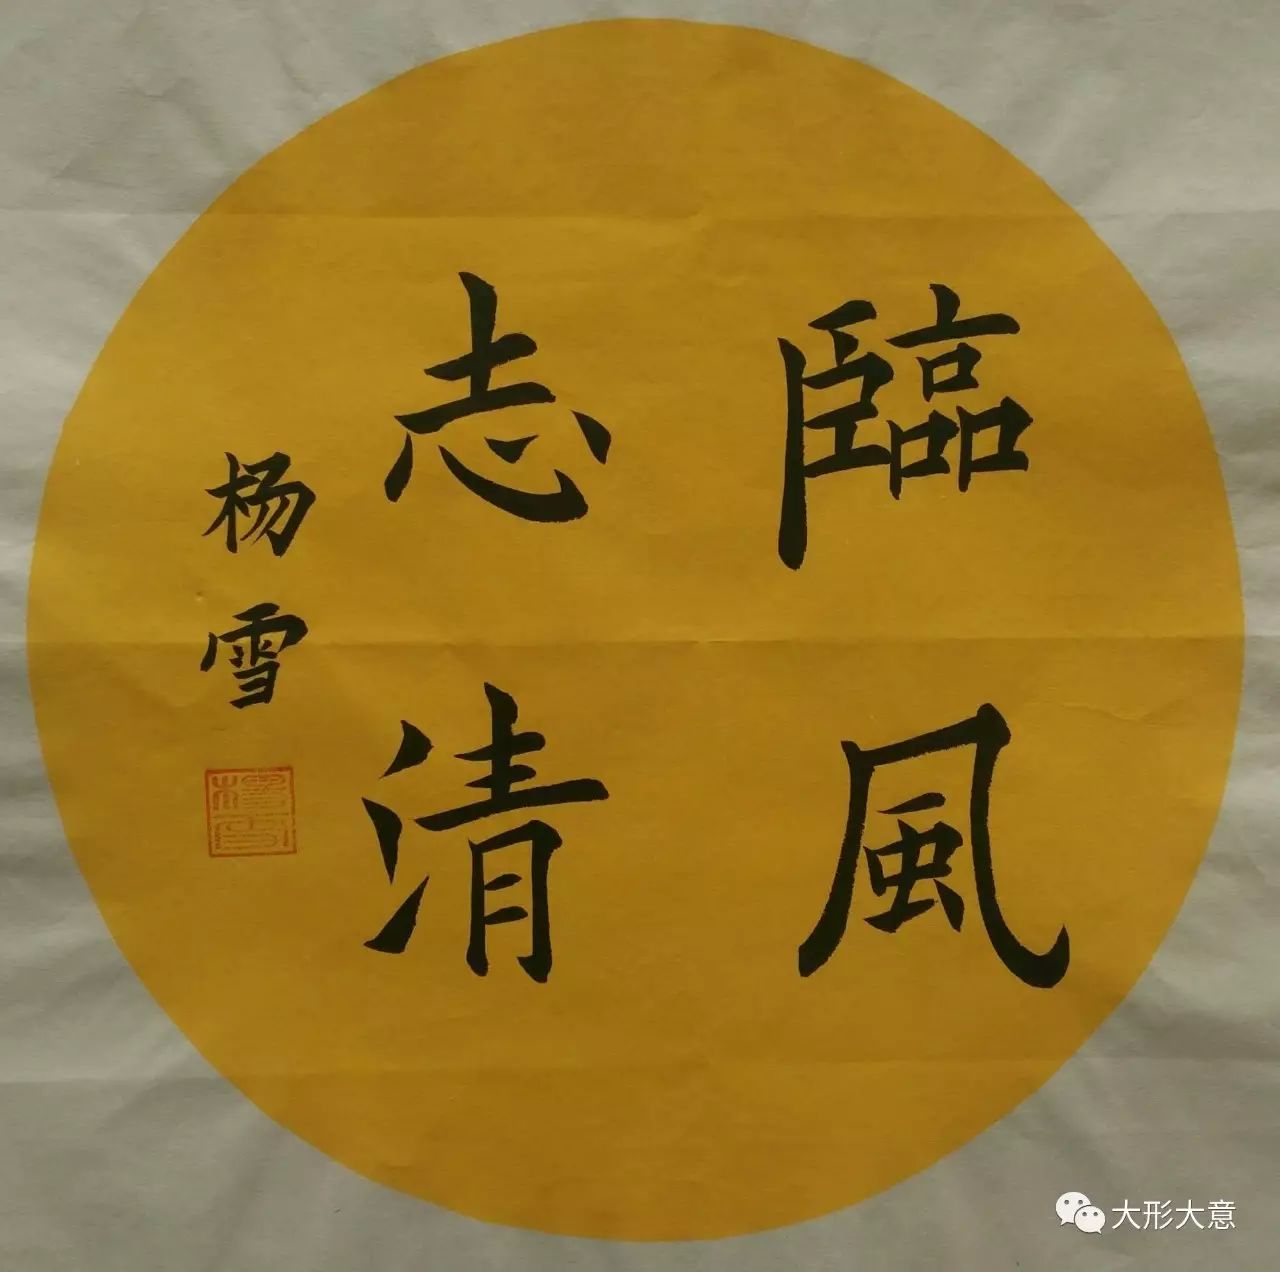 臨風
志清
杨雪
楊雪
大形大意